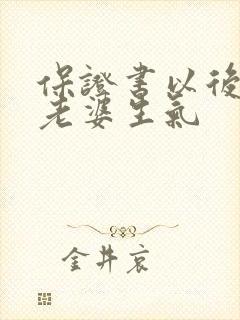 保證書以後
老婆生氣
金井哀